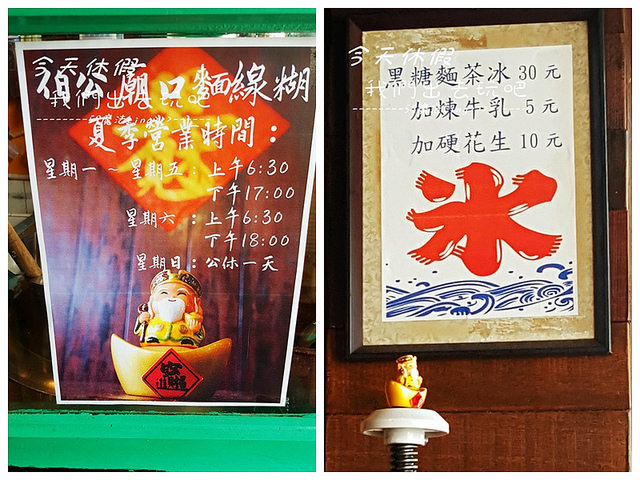 今天休假
我們出去玩吧
公廟口麵線糊
夏季營業時間：
星期一～星期五：上午6:30
下午17:00
星期六：上午6:30
下午18:00
星期日：公休一天
今天休假
我們出去玩吧
黑糖麵茶冰 30元
加煉牛乳 5元
加硬花生 10元
冰